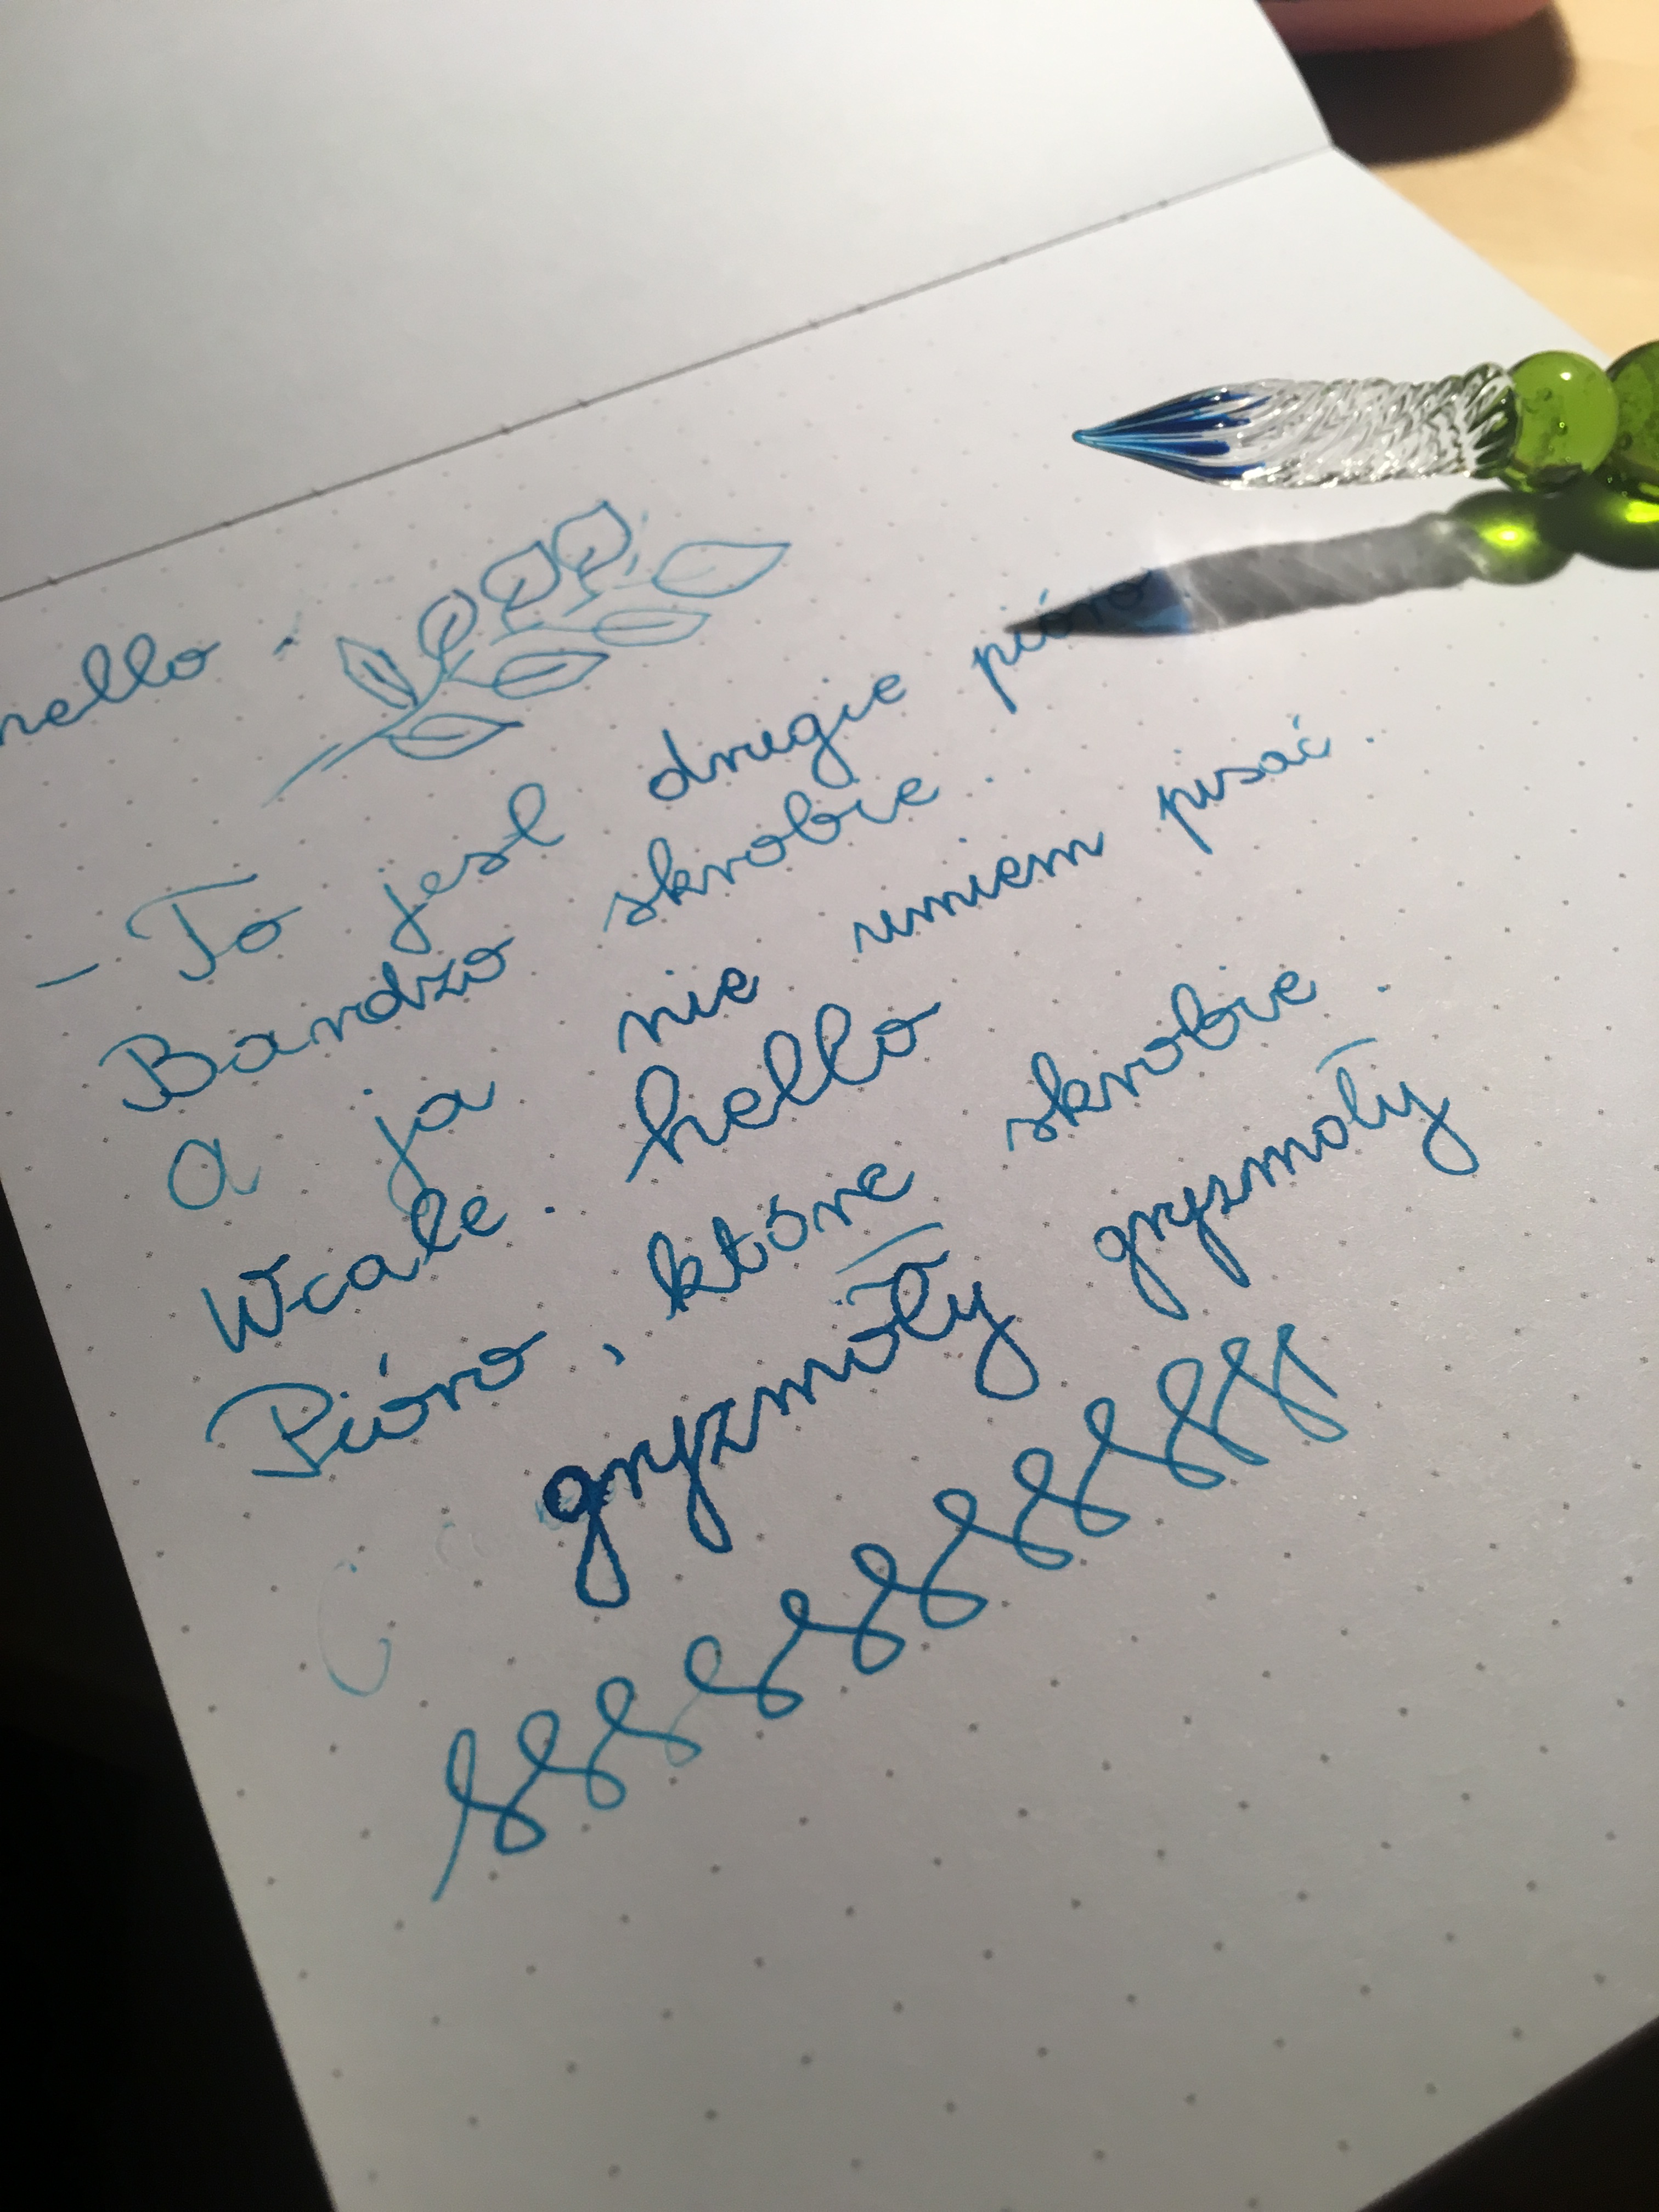 hello
- To jest drugie pióro
Bardzo skrobie.
A ja nie umiem pisać.
Wcale. hello
Pióro, które skrobie.
gryzmoły gryzmoły